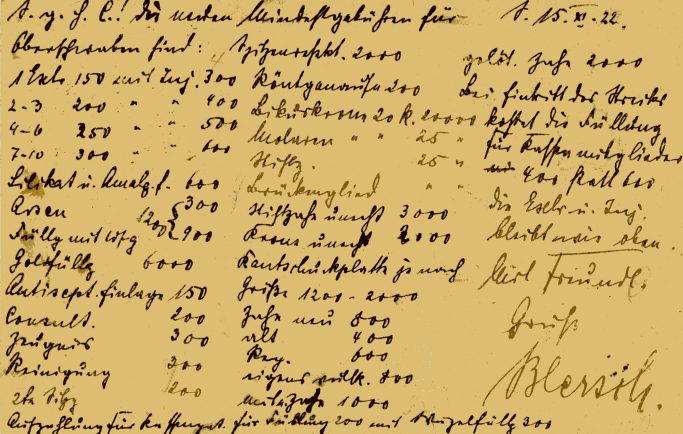 S. g. H. C.! Die neuen Mindestgebühren für
Oberschwaben sind:
1 Extr 150 mit Inj. 300
2-3 200 " " 400
4-6 250 " " 500
7-10 300 " " 600
Silikat u. Amalg. f. 600
Arsen 300
1200
Füllg mit Wfg 900
Goldfüllg 6000
Antisept. Einlage 150
Consult. 200
Zeugnis 300
Reinigung 300
2te Sitzg 200
Spitzenresekt. 2000
Röntgenaufn 200
Bikuskrone 20 k. 20000
Molaren " " 25 "
Stiftz. 25 "
Brückenglied " "
Stiftzahn unecht 3000
Krone unecht 2000
Kautschukplatte je nach
Größe 1200 - 2000
Zahn neu 500
alt 400
Rep. 600
eigens vulk. 800
mit Zahn 1000
S. 15. XI. 22.
gelöt. Zahn 2000
Bei Eintritt des Streiks
kostet die Füllung
für Kassenmitglieder
400 statt 600
die Extr. u. Inj.
bleibt wie oben.
Mit Freundl.
Gruß
Blersch.
Aufzahlung für Kassenpat. für Füllung 200 mit Wurzelfüllg 300